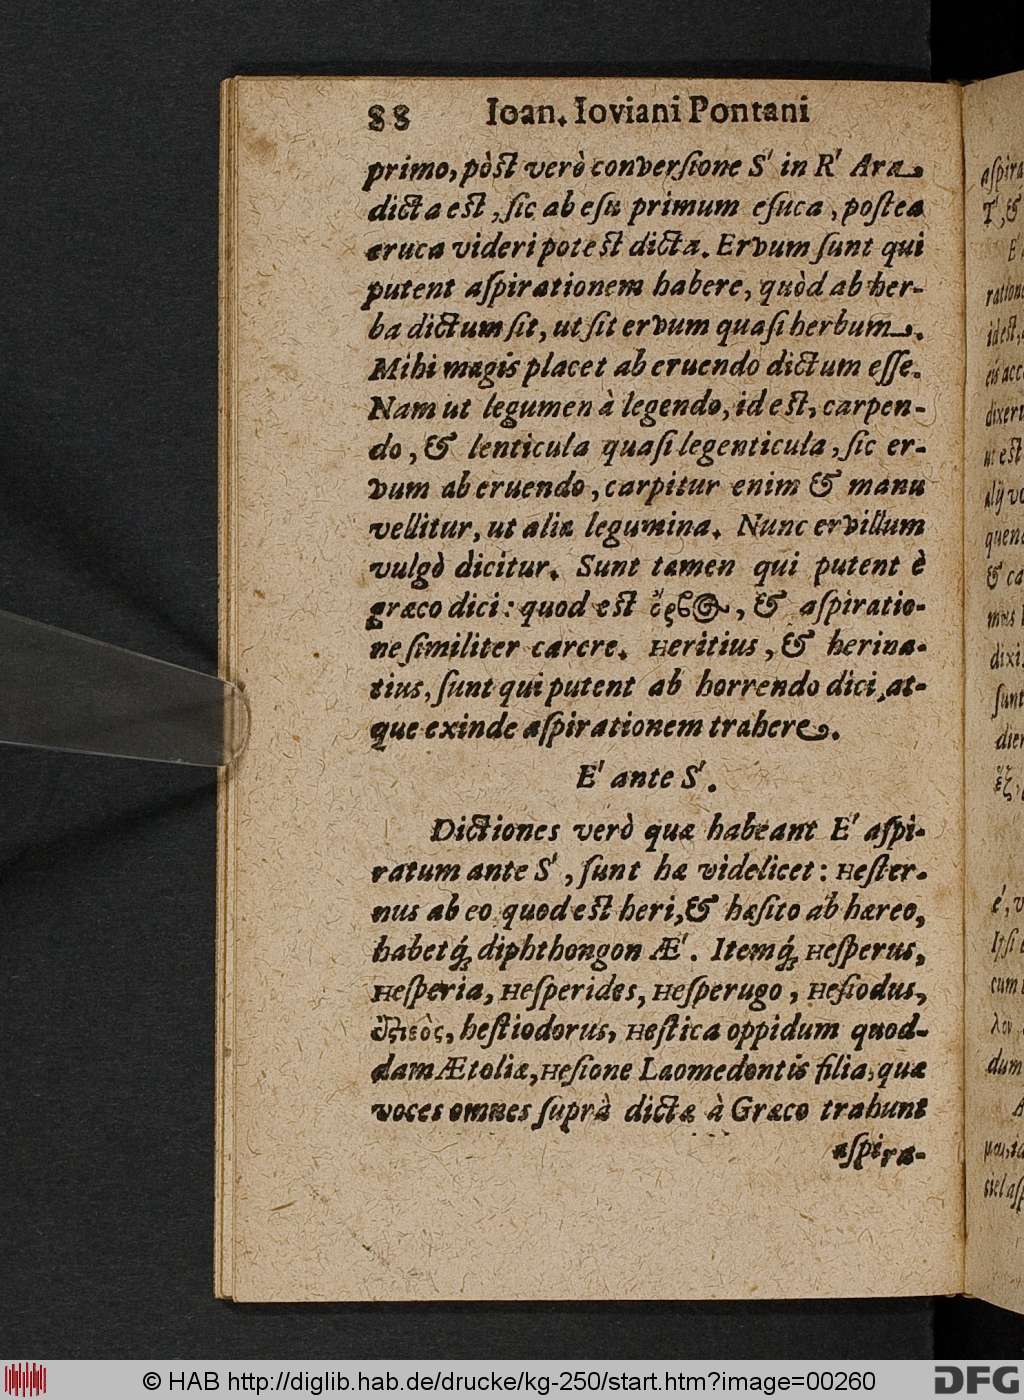 88 Ioan. Ioviani Pontani
primo, pòst verò conversione S' in R' Ara
dicta est, sic ab esu primum esuca, postea
eruca videri potest dicta. Ervum sunt qui
putent aspirationem habere, quòd ab her-
ba dictum sit, ut sit ervum quasi herbum.
Mihi magis placet ab eruendo dictum esse.
Nam ut legumen à legendo, id est, carpen-
do, & lenticula quasi legenticula, sic er-
vum ab eruendo, carpitur enim & manu
vellitur, ut aliæ legumina. Nunc ervillum
vulgò dicitur. Sunt tamen qui putent è
græco dici: quod est , & aspiratio-
ne similiter carcre. Heritius, & herina-
tius, sunt qui putent ab horrendo dici, at-
que exinde aspirationem trahere.
E' ante S'.
Dictiones verò quæ habeant E' aspi-
ratum ante S', sunt hæ videlicet: Hester-
nus ab eo quod est heri, & hæsito ab hæreo,
habetq́; diphthongon Æ'. Itemq́; Hesperus,
Hesperia, Hesperides, Hesperugo, Hesiodus,
hestiodorus, Hestica oppidum quod-
dam Ætoliæ, Hesione Laomedontis filia, quæ
voces omnes suprà dictæ à Græco trahunt
aspira-
aspira
T', &
E
ratione
id est,
eis acc
dixeri
ut est
alij ve
quen
& ca
mus
dixi.
sunt
dier
è, v
cum
dum
© HAB http://diglib.hab.de/drucke/kg-250/start.htm?image=00260
DFG